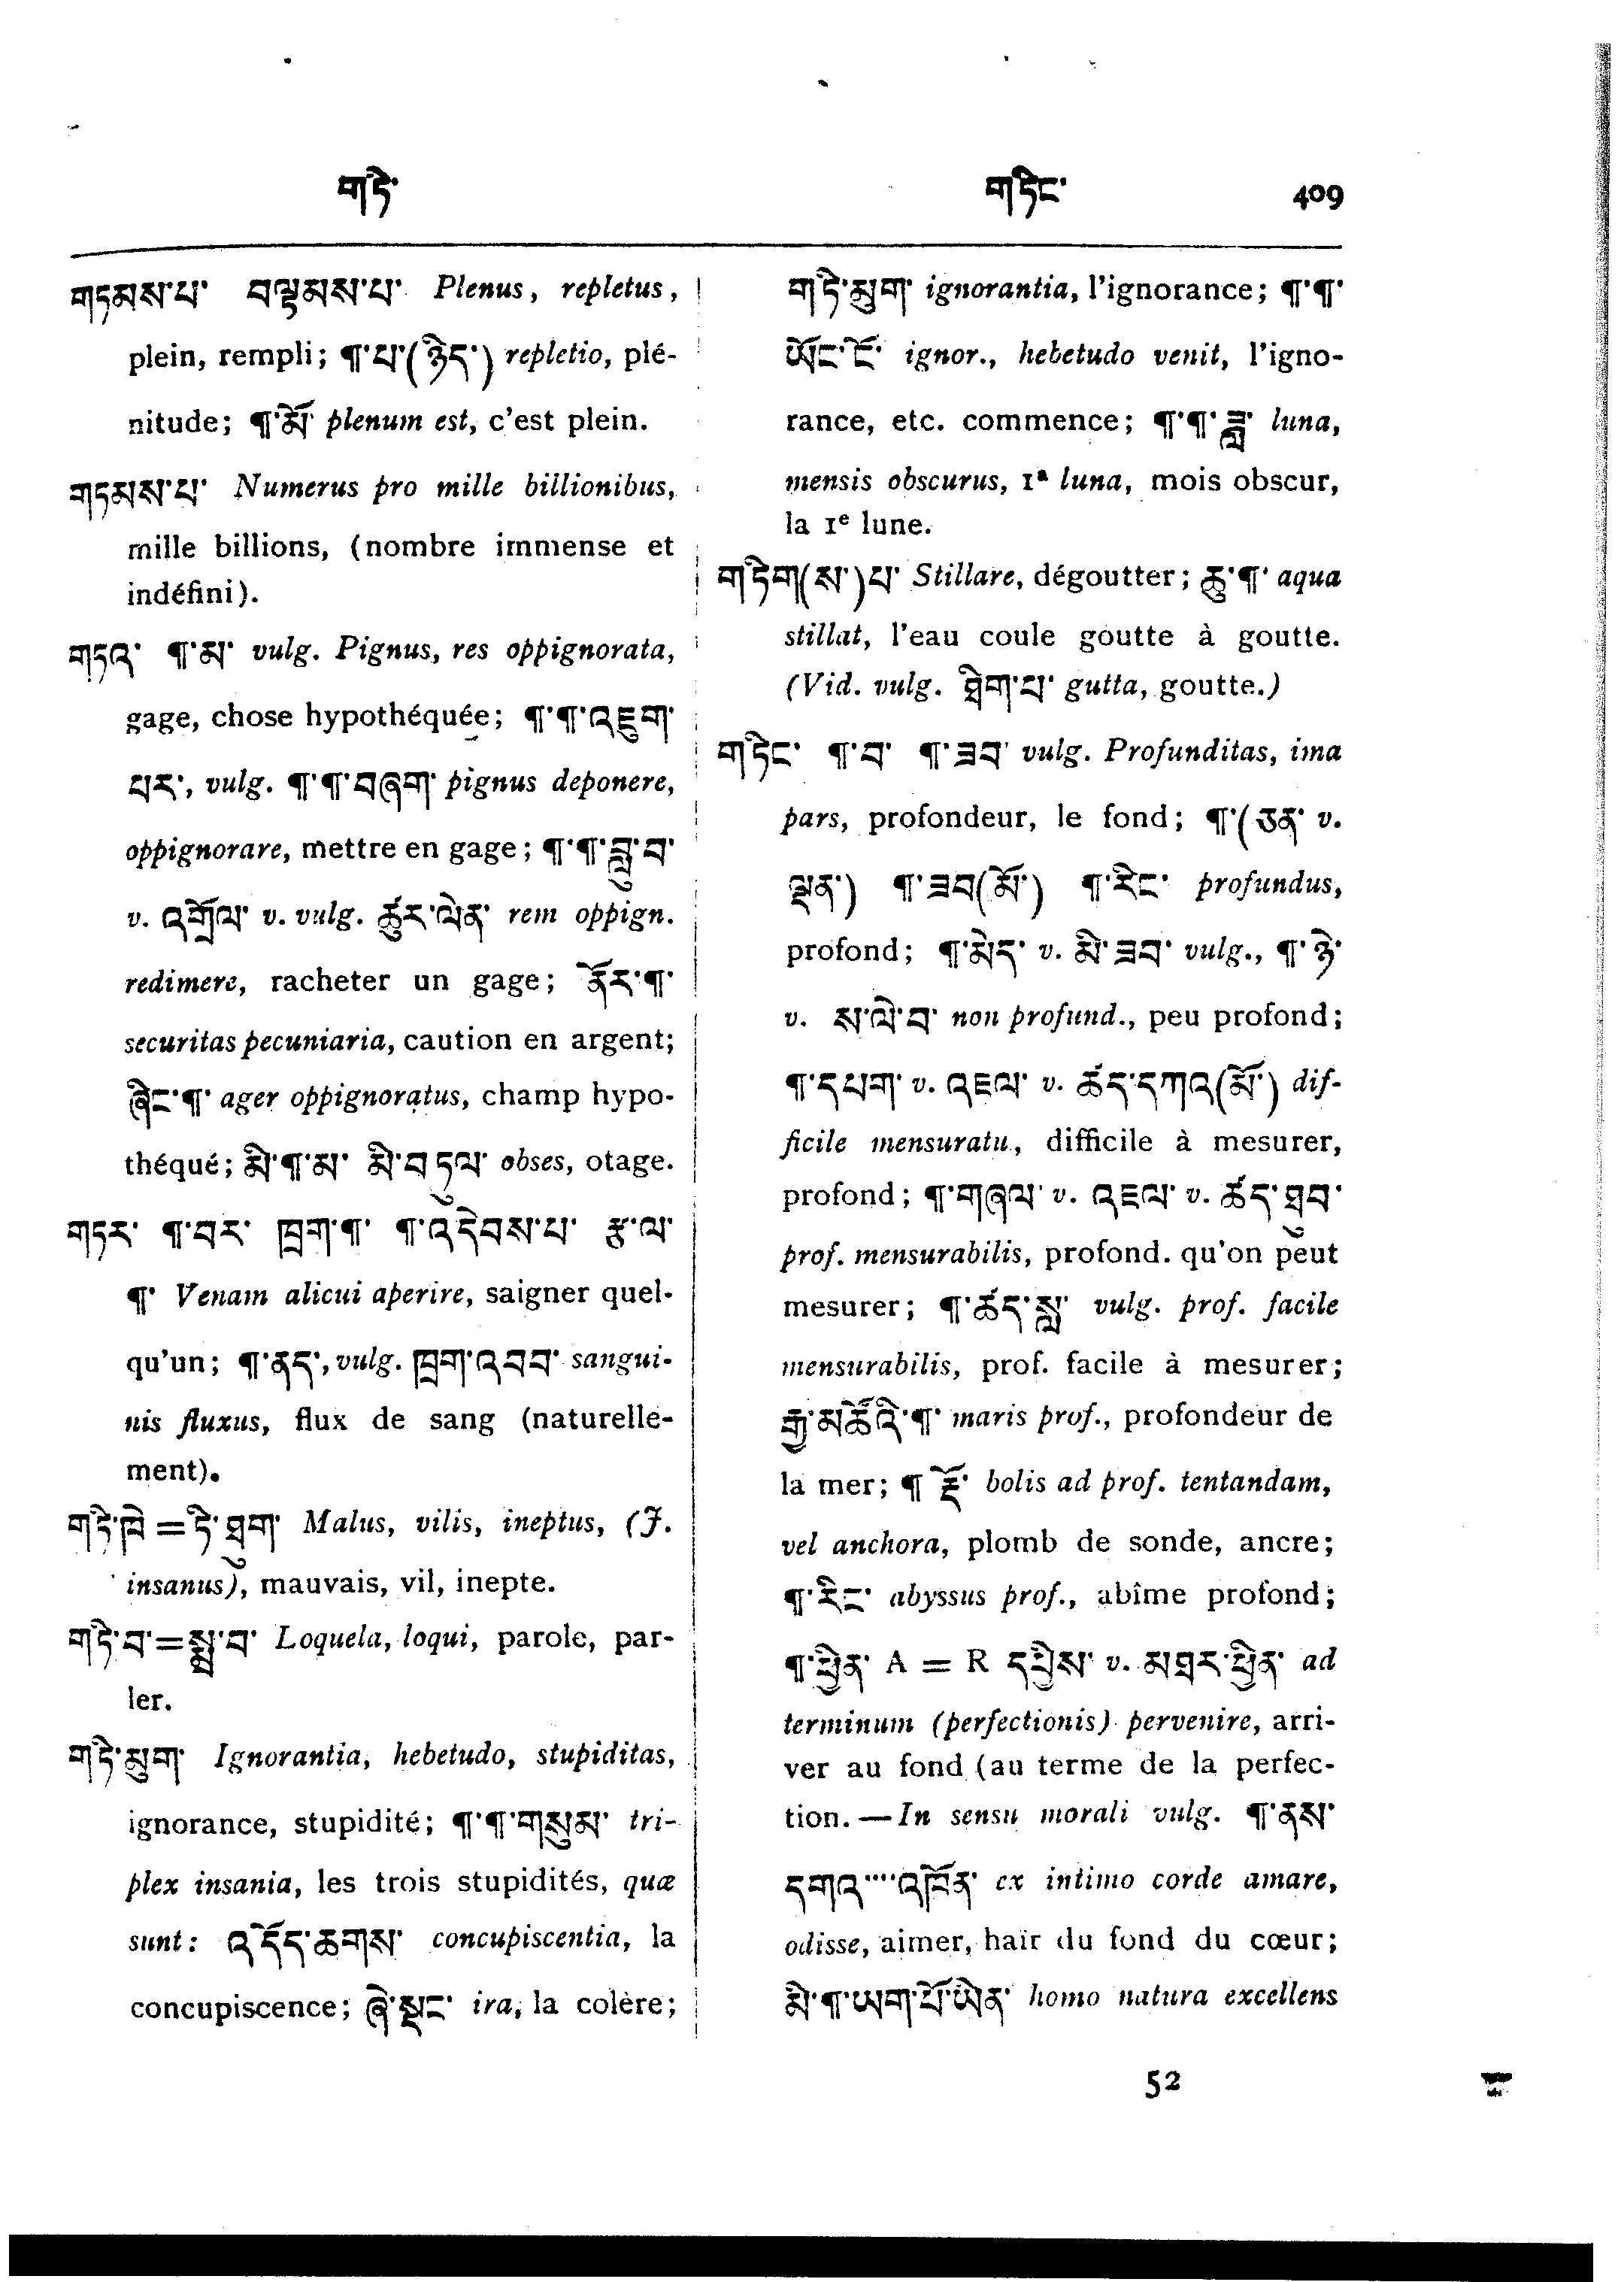 གཏེ་
གཏིང་ 409
གཏམས་པ་ བལྟམས་པ་ Plenus, repletus,
plein, rempli; ¶་པ་(ཉིད་) repletio, plé-
nitude; ¶་མོ་ plenum est, c'est plein.
གཏམས་པ་ Numerus pro mille billionibus,
mille billions, (nombre immense et
indéfini).
གཏའ་ ¶་མ་ vulg. Pignus, res oppignorata,
gage, chose hypothéquée; ¶་¶་འཇུག་
པར་, vulg. ¶་¶་བཞག་ pignus deponere,
oppignorare, mettre en gage; ¶་¶་བླུ་བ་
v. འགྲོལ་ v. vulg. ཚུར་ལེན་ rem oppign.
redimere, racheter un gage; ནོར་¶་
securitas pecuniaria, caution en argent;
ཞིང་¶་ ager oppignoratus, champ hypo-
théqué; མི་¶་མ་ མི་བཏུལ་ obses, otage.
གཏར་ ¶་བར་ ཁྲག་¶་ ¶་འདེབས་པ་ རྩ་ལ་
¶་ Venam alicui aperire, saigner quel-
qu'un; ¶་ནད་, vulg. ཁྲག་འབབ་ sangui-
nis fluxus, flux de sang (naturelle-
ment).
གཏེ་ཁེ=ཏེ་ཐུག་ Malus, vilis, ineptus, (J.
insanus), mauvais, vil, inepte.
གཏེ་བ་=སྨྲ་བ་ Loquela, loqui, parole, par-
ler.
གཏི་མུག་ Ignorantia, hebetudo, stupiditas,
ignorance, stupidité; ¶་¶་གསུམ་ tri-
plex insania, les trois stupidités, quæ
sunt: འདོད་ཆགས་ concupiscentia, la
concupiscence; ཞེ་སྡང་ ira, la colère;
གཏི་མུག་ ignorantia, l'ignorance; ¶་¶་
ཡོང་ངོ་ ignor., hebetudo venit, l'igno-
rance, etc. commence; ¶་¶་ཟླ་ luna,
mensis obscurus, 1ª luna, mois obscur,
la 1e lune.
གཏིག(ས་)པ་ Stillare, dégoutter; ཆུ་¶་ aqua
stillat, l'eau coule goutte à goutte.
(Vid. vulg. ཐིག་པ་ gutta, goutte.)
གཏིང་ ¶་བ་ ¶་ཟབ་ vulg. Profunditas, ima
pars, profondeur, le fond; ¶་(ཅན་ v.
ལྡན་) ¶་ཟབ(མོ་) ¶་རིང་ profundus,
profond; ¶་མེད་ v. མི་ཟབ་ vulg., ¶་ཉེ་
v. ས་ལེ་བ་ non profund., peu profond;
¶་དཔག་ v. འཇལ་ v. ཚད་དཀའ(མོ་) dif-
ficile mensuratu, difficile à mesurer,
profond; ¶་གཞལ་ v. འཇལ་ v. ཚད་ཐུབ་
prof. mensurabilis, profond. qu'on peut
mesurer; ¶་ཚད་སླ་ vulg. prof. facile
mensurabilis, prof. facile à mesurer;
རྒྱ་མཚོའི་¶་ maris prof., profondeur de
la mer; ¶ རྡོ་ bolis ad prof. tentandam,
vel anchora, plomb de sonde, ancre;
¶་རིང་ abyssus prof., abîme profond;
¶་ཕྱིན་ A = R དཔྱིས་ v. མཐར་ཕྱིན་ ad
terminum (perfectionis) pervenire, arri-
ver au fond (au terme de la perfec-
tion. — In sensu morali vulg. ¶་ནས་
དགའ་་་་འཁོན་ ex intimo corde amare,
odisse, aimer, haïr du fond du cœur;
མི་¶་ཡག་པོ་ཡིན་ homo natura excellens
52